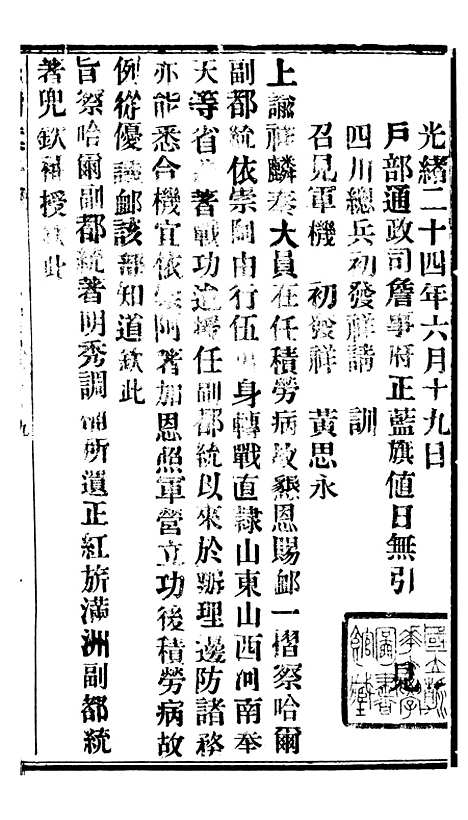 光緒二十四年六月十九日
戶部通政司詹事府正藍旗值日無引見
四川總兵初發祥請 訓
召見軍機 初發祥 黃思永
上諭祥麟奏大員在任積勞病故懇恩賜卹一摺察哈爾
副都統依崇阿由行伍出身轉戰直隸山東山西河南奉
天等省 著戰功 任副都統以來於辦理邊防諸務
亦能悉合機宜依崇阿著加恩照軍營立功後積勞病故
例從優議卹該部知道欽此
旨察哈爾副都統著明秀調補所遺正紅旂滿洲副都統
著兜欽補授欽此
國立 大學圖書館藏